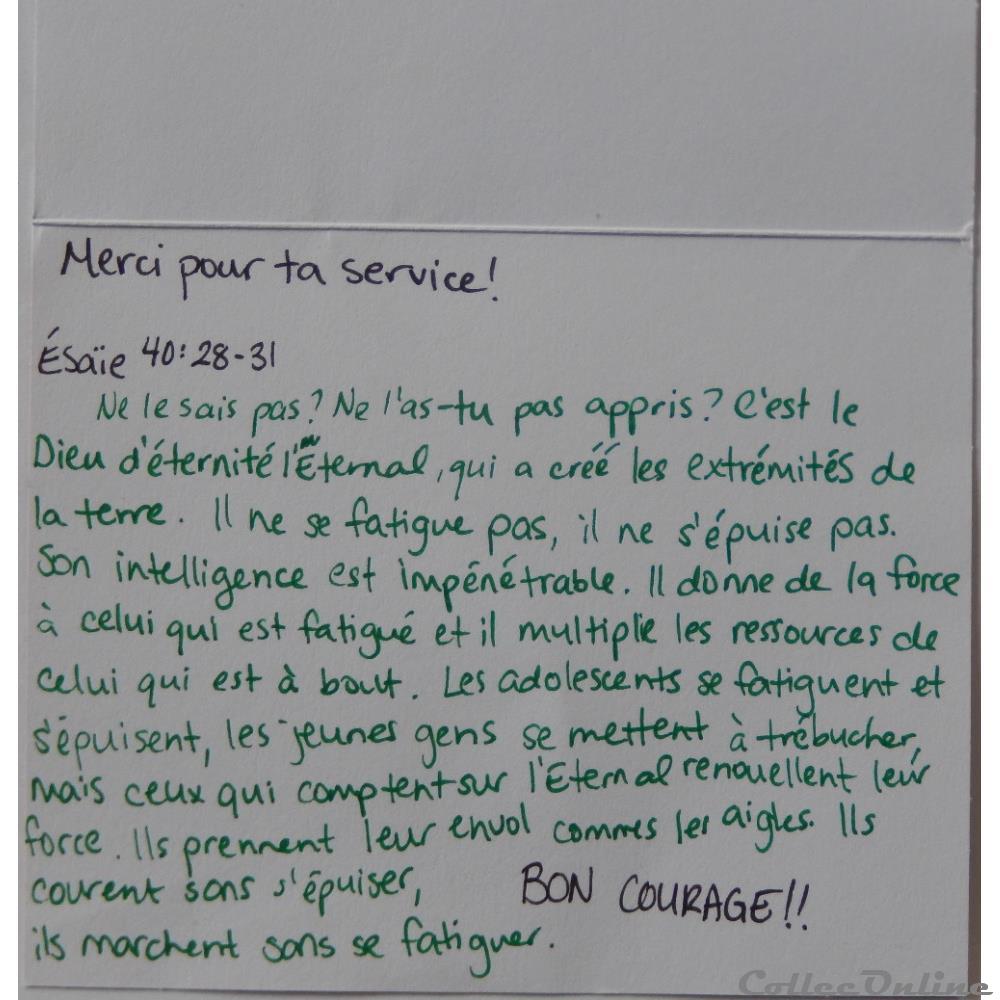 Merci pour ta service!
Ésaïe 40:28-31
Ne le sais pas? Ne l'as-tu pas appris? C'est le
Dieu d'éternité l'Éternal, qui a créé les extrémités de
la terre. Il ne se fatigue pas, il ne s'épuise pas.
Son intelligence est impénétrable. Il donne de la force
à celui qui est fatigué et il multiplie les ressources de
celui qui est à bout. Les adolescents se fatiguent et
s'épuisent, les jeunes gens se mettent à trébucher,
mais ceux qui comptent sur l'Eternal renouellent leur
force. Ils prennent leur envol commes les aigles. Ils
courent sans s'épuiser,
ils marchent sans se fatiguer.
BON COURAGE!!
CollecOnline